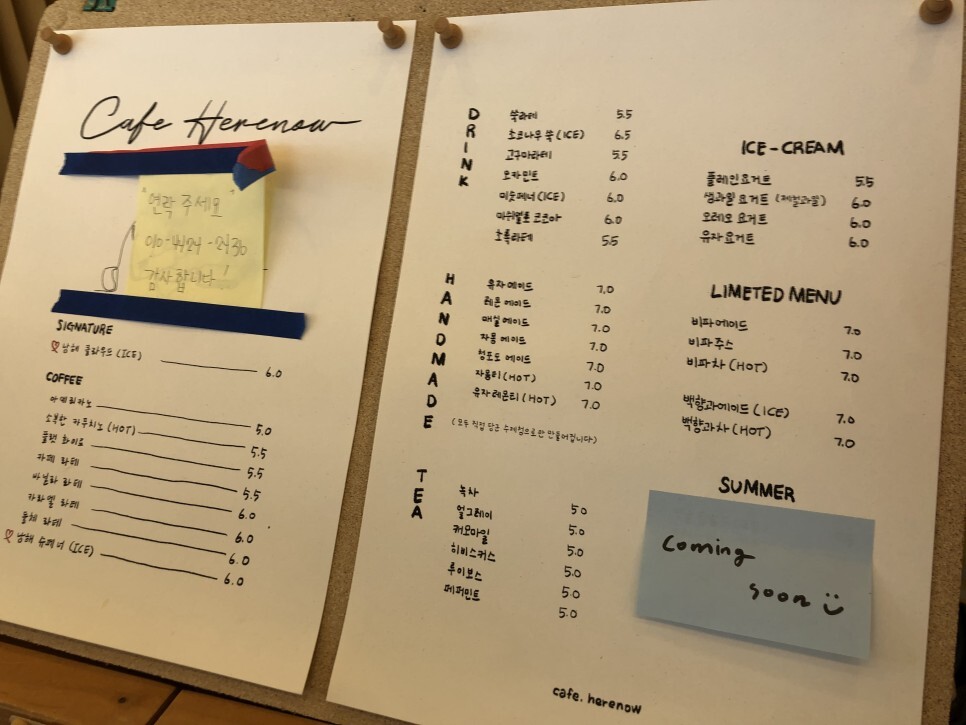 Cafe Herenow
"연락 주세요"
010-4124-2430
감사합니다!
SIGNATURE
남해 클라우드 (ICE) 6.0
COFFEE
아메리카노 5.0
소복한 카푸치노 (HOT) 5.5
플랫 화이트 5.5
카페 라떼 5.5
바닐라 라떼 6.0
카라멜 라떼 6.0
돌체 라떼 6.0
남해 슈페너 (ICE) 6.0
DRINK
쑥라떼 5.5
초코나무 쑥 (ICE) 6.5
고구마라떼 5.5
모카민트 6.0
미숫페너 (ICE) 6.0
마쉬멜로 코코아 6.0
초록라떼 5.5
HANDMADE
유자 에이드 7.0
레몬 에이드 7.0
매실 에이드 7.0
자몽 에이드 7.0
청포도 에이드 7.0
자몽티 (HOT) 7.0
유자레몬티 (HOT) 7.0
(모두 직접 담근 수제청으로만 만들어집니다)
TEA
녹차 5.0
얼그레이 5.0
캐모마일 5.0
히비스커스 5.0
루이보스 5.0
페퍼민트 5.0
ICE-CREAM
플레인요거트 5.5
생과일 요거트 (제철과일) 6.0
오레오 요거트 6.0
유자요거트 6.0
LIMETED MENU
비파에이드 7.0
비파주스 7.0
비파차 (HOT) 7.0
백향과에이드 (ICE) 7.0
백향과차 (HOT) 7.0
SUMMER
Coming
soon
cafe.herenow